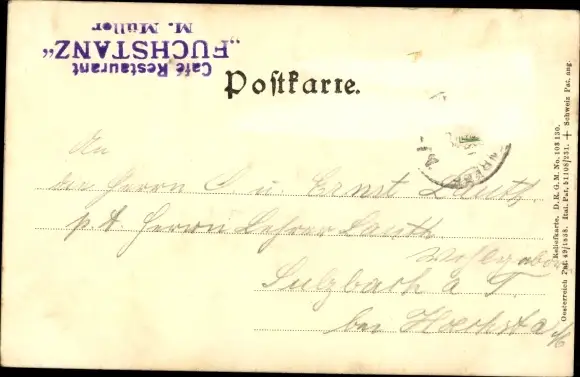 Café Restaurant
„FUCHSTANZ“
M. Müller
Postkarte.
An
die Herrn C u. Ernst Lauth
p. A Herrn Lehrer Lauth
Sulzbach a T.
bei Hoechst a/M
Reliefkarte. D. R. G. M. No. 103 130.
Oesterreich Pat. 49/1858. Ital. Pat. 51108/231. + Schweiz Pat. ang.